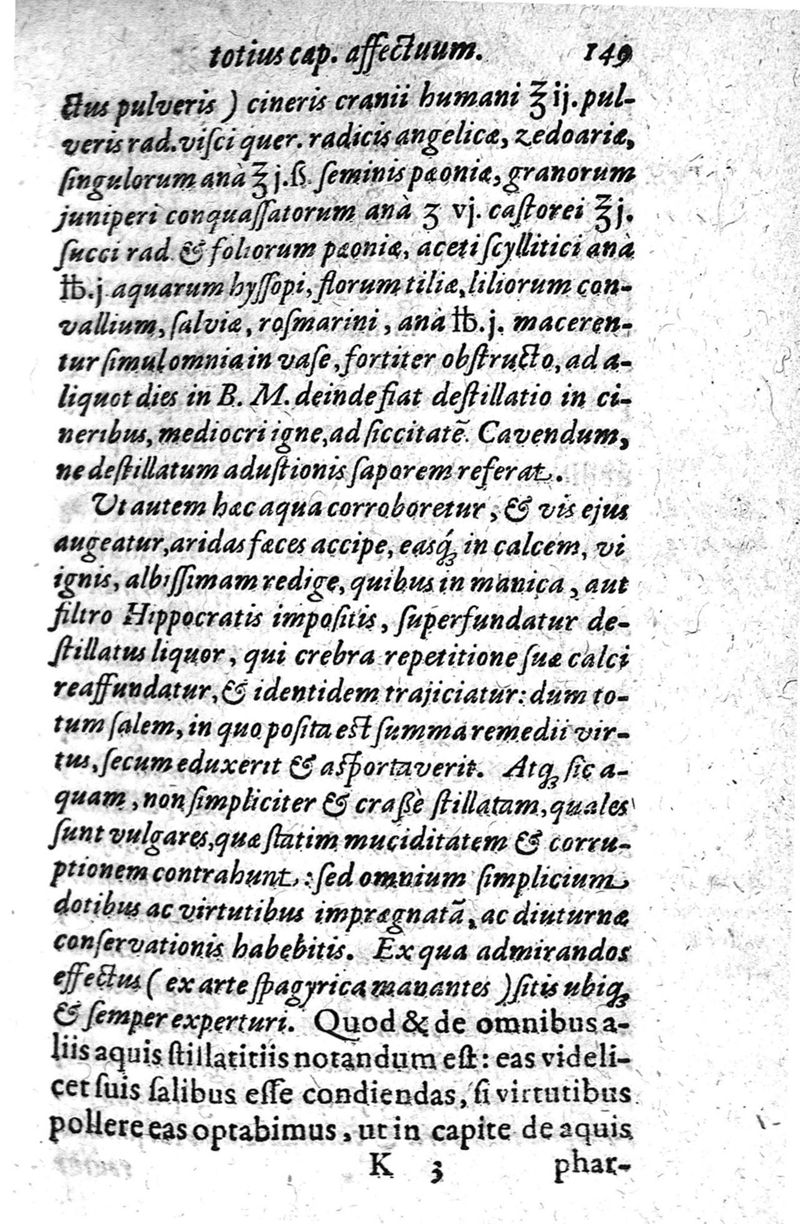 totius cap. affectuum. 149
ctus pulveris ) cineris cranii humani ℥ ij. pul-
veris rad. viſci quer. radicis angelicæ, zedoariæ,
ſingulorum anà ℥ j.ß. ſeminis pæoniæ, granorum
juniperi conquaſſatorum anà ʒ vj. caſtorei ℥ j.
ſucci rad. & foliorum pæoniæ, aceti ſcyllitici anà
℔.j aquarum hyſſopi, florum tiliæ, liliorum con-
vallium, ſalviæ, roſmarini, anà ℔.j. maceren-
tur ſimul omnia in vaſe, fortiter obſtructo, ad a-
liquot dies in B. M. deinde fiat deſtillatio in ci-
neribus, mediocri igne, ad ſiccitatẽ. Cavendum,
ne deſtillatum aduſtionis ſaporem referat.
Ut autem hæc aqua corroboretur, & vis ejus
augeatur, aridas fæces accipe, easq́ꝫ in calcem, vi
ignis, albiſſimam redige, quibus in manica, aut
filtro Hippocratis impoſitis, ſuperfundatur de-
ſtillatus liquor, qui crebra repetitione ſuæ calci
reaffundatur, & identidem trajiciatur: dum to-
tum ſalem, in quo poſita eſt ſumma remedii vir-
tus, ſecum eduxerit & aſportaverit. Atqꝫ ſic a-
quam, non ſimpliciter & craßè ſtillatam, quales
ſunt vulgares, quæ ſtatim muciditatem & corru-
ptionem contrahunt: ſed omnium ſimplicium
dotibus ac virtutibus imprægnatã, ac diuturnæ
conſervationis habebitis. Ex qua admirandos
effectus ( ex arte ſpagyrica manantes ) ſitis ubiqꝫ
& ſemper experturi. Quod & de omnibus a-
liis aquis ſtillatitiis notandum eſt: eas videli-
cet ſuis ſalibus eſſe condiendas, ſi virtutibus
pollere eas optabimus, ut in capite de aquis
K 3 phar-